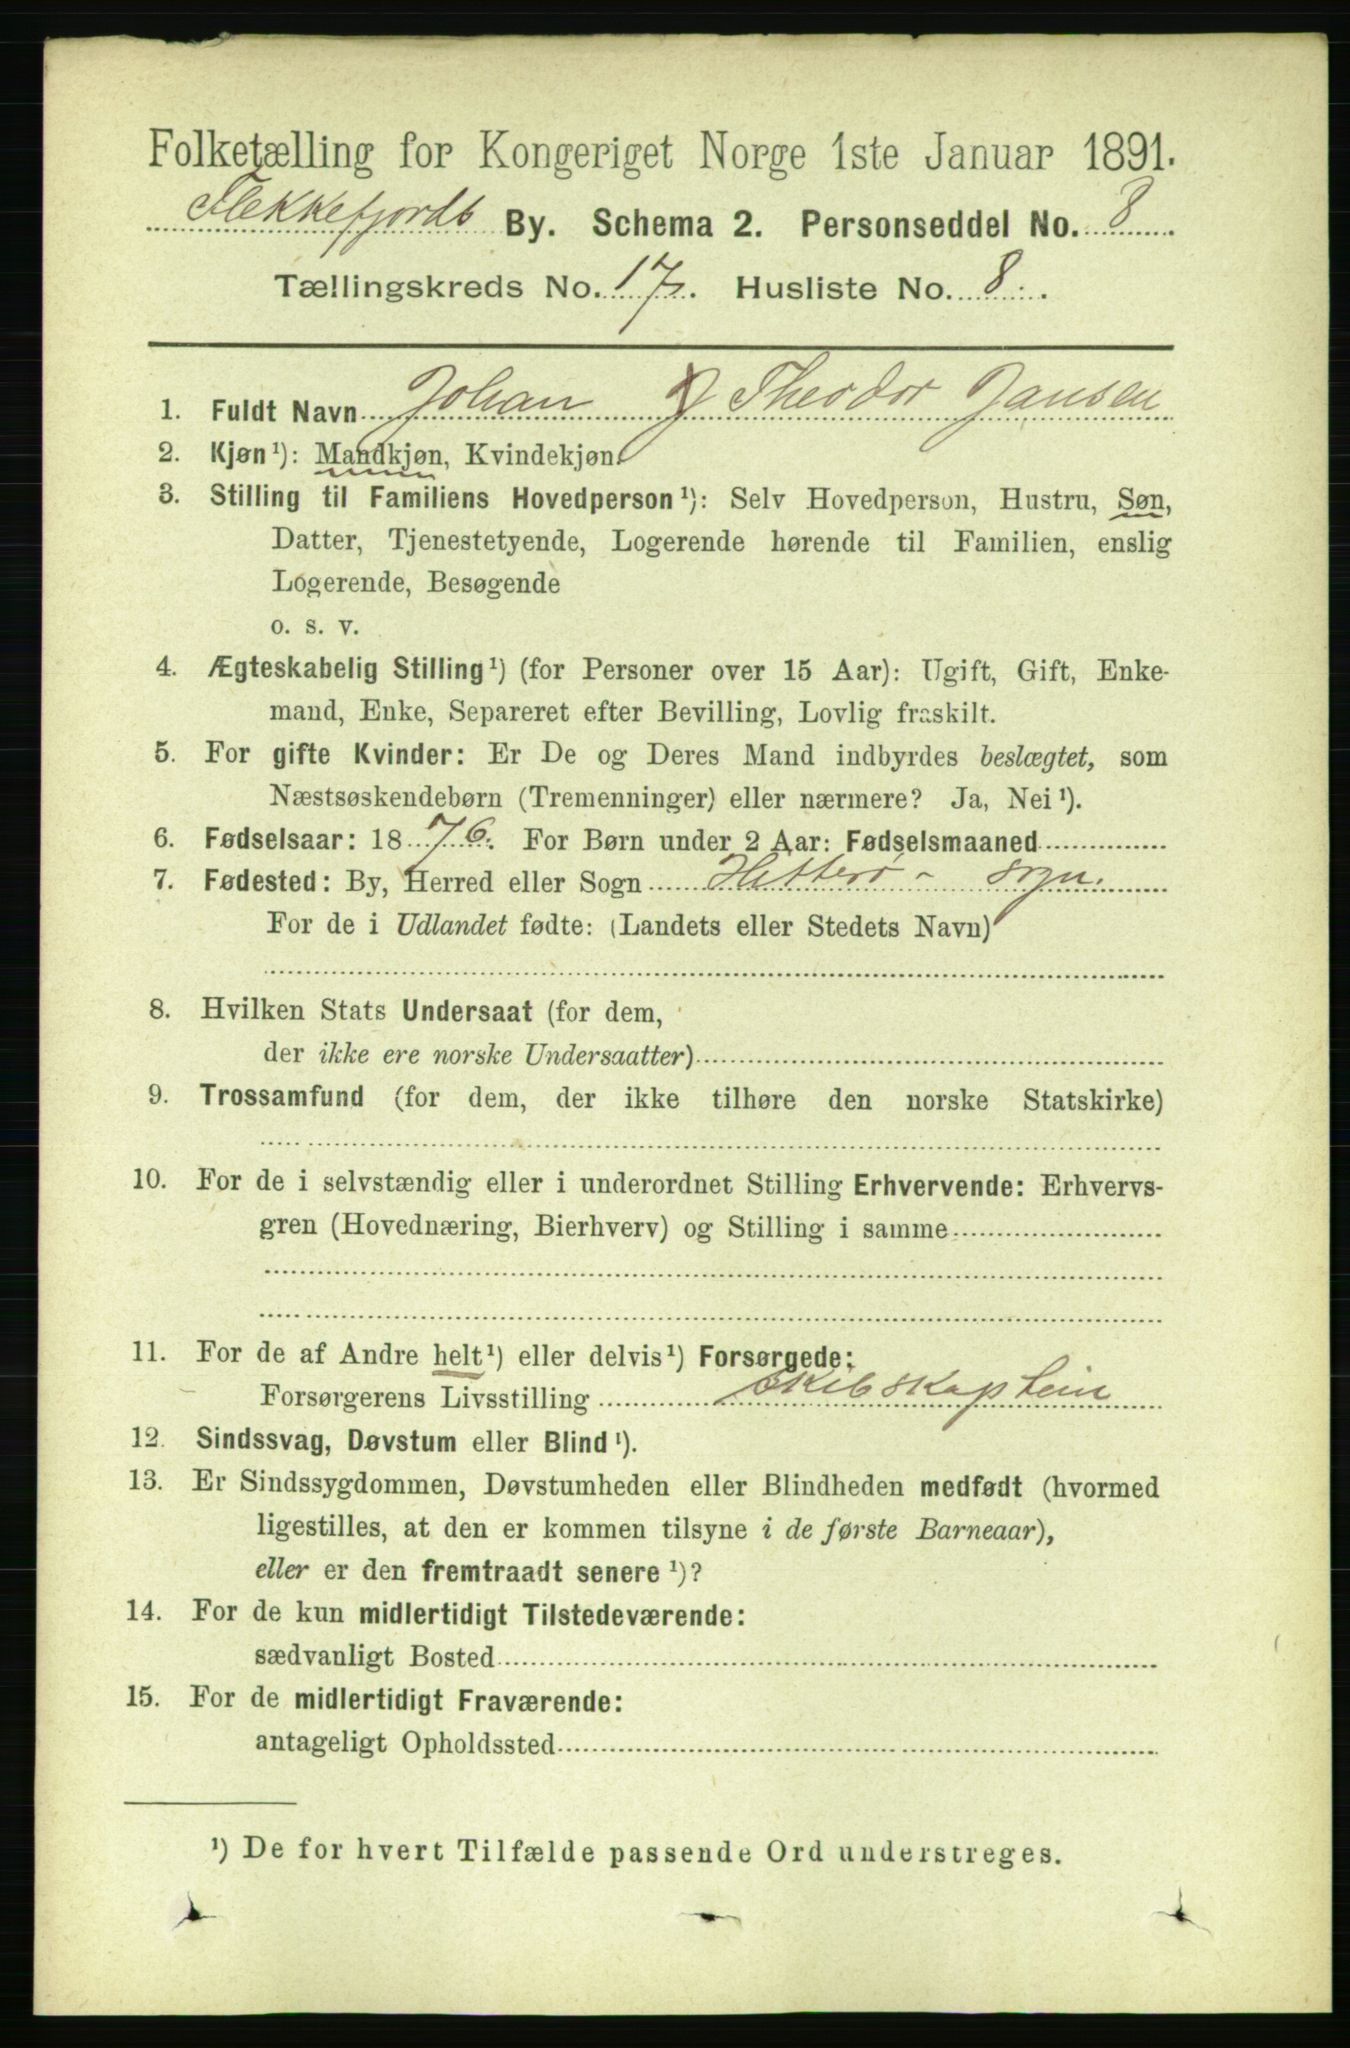 Folketælling for Kongeriget Norge 1ste Januar 1891.
Flekkefjords By. Schema 2. Personseddel No. 8.
Tællingskreds No. 17. Husliste No. 8.
1. Fuldt Navn Johan Theodor Jansen
2. Kjøn¹): Mandkjøn, Kvindekjøn.
3. Stilling til Familiens Hovedperson¹): Selv Hovedperson, Hustru, Søn,
Datter, Tjenestetyende, Logerende hørende til Familien, enslig
Logerende, Besøgende
o. s. v.
4. Ægteskabelig Stilling¹) (for Personer over 15 Aar): Ugift, Gift, Enke-
mand, Enke, Separeret efter Bevilling, Lovlig fraskilt.
5. For gifte Kvinder: Er De og Deres Mand indbyrdes beslægtet, som
Næstsøskendebørn (Tremenninger) eller nærmere? Ja, Nei¹).
6. Fødselsaar: 1876. For Børn under 2 Aar: Fødselsmaaned
7. Fødested: By, Herred eller Sogn Hitterø - sogn.
For de i Udlandet fødte: (Landets eller Stedets Navn)
8. Hvilken Stats Undersaat (for dem,
der ikke ere norske Undersaatter)
9. Trossamfund (for dem, der ikke tilhøre den norske Statskirke)
10. For de i selvstændig eller i underordnet Stilling Erhvervende: Erhvervs-
gren (Hovednæring, Bierhverv) og Stilling i samme
11. For de af Andre helt¹) eller delvis¹) Forsørgede:
Forsørgerens Livsstilling Skibskaptein
12. Sindssvag, Døvstum eller Blind¹).
13. Er Sindssygdommen, Døvstumheden eller Blindheden medfødt (hvormed
ligestilles, at den er kommen tilsyne i de første Barneaar),
eller er den fremtraadt senere¹)?
14. For de kun midlertidigt Tilstedeværende:
sædvanligt Bosted
15. For de midlertidigt Fraværende:
antageligt Opholdssted
¹) De for hvert Tilfælde passende Ord understreges.